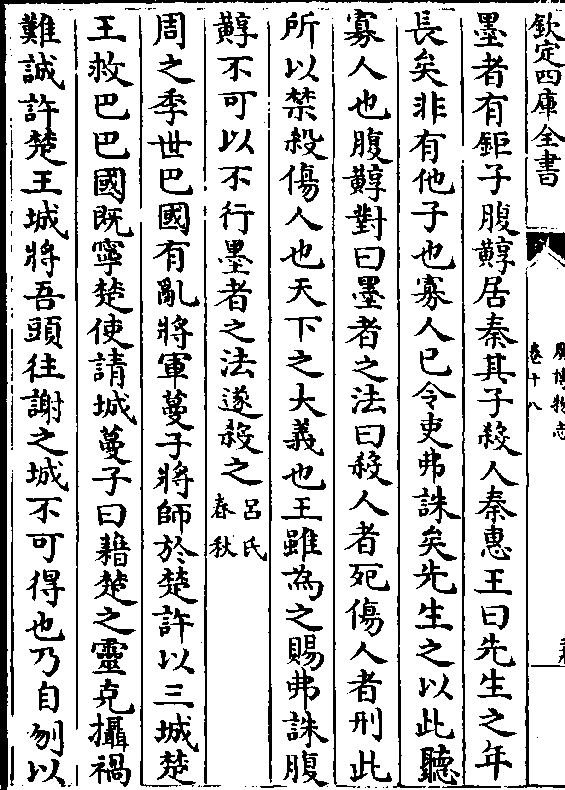 欽定四庫全書
廣博物志
卷十八
墨者有鉅子腹䵍居秦其子殺人秦惠王曰先生之年
長矣非有他子也寡人已令吏弗誅矣先生之以此聽
寡人也腹䵍對曰墨者之法曰殺人者死傷人者刑此
所以禁殺傷人也天下之大義也王雖為之賜弗誅腹
䵍不可以不行墨者之法遂殺之呂氏春秋
周之季世巴國有亂將軍蔓子將師於楚許以三城楚
王救巴巴國既寧楚使請城蔓子曰藉楚之靈克攝禍
難誠許楚王城將吾頭往謝之城不可得也乃自刎以